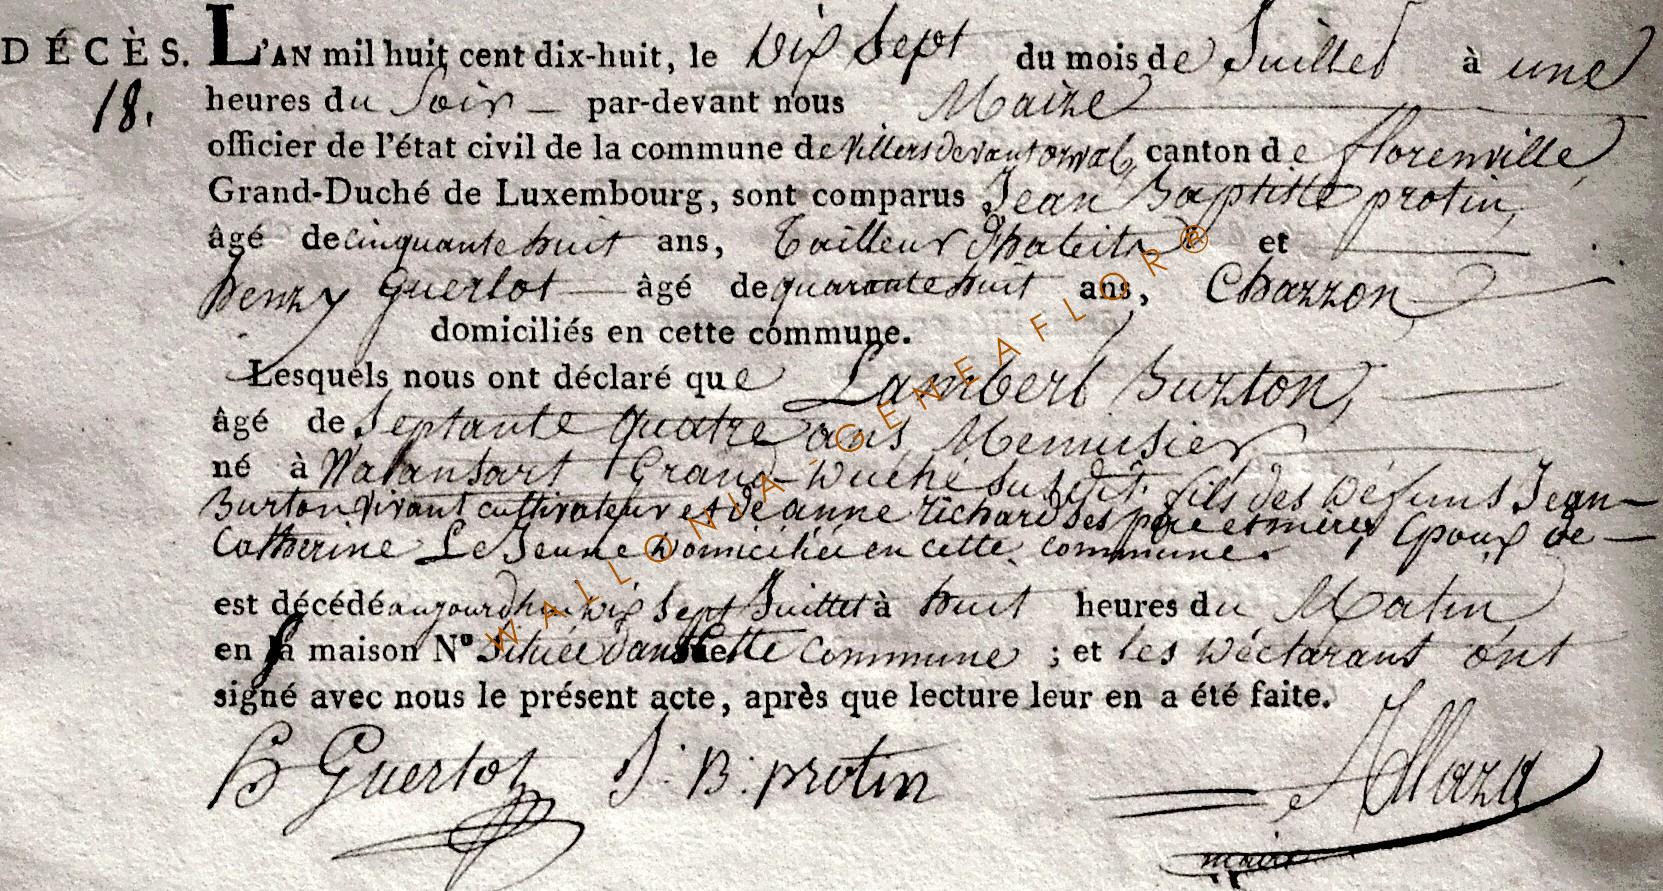 DÉCÈS. L'AN mil huit cent dix-huit, le Dix Sept du mois de Juillet à une
18. heures du Soir par-devant nous Maire
officier de l'état civil de la commune de Villers devant orval, canton de florenville,
Grand-Duché de Luxembourg, sont comparus Jean Baptiste protin,
âgé de cinquante huit ans, Tailleur d'habits et
henry Guerlot âgé de quarante huit ans, Charron
domiciliés en cette commune.
Lesquels nous ont déclaré que Lambert Burton,
âgé de Septante quatre ans Menuisier
né à Watansart Grand-Duché susdit, fils des Défunts Jean
Burton vivant cultivateur et de anne richard ses père et mère, Epoux de
Catherine Le Jeune Domiciliée en cette commune.
est décédé aujourdhui dix Sept Juillet à huit heures du Matin
en sa maison N° Située dans Cette Commune ; et les Déclarant ont
signé avec nous le présent acte, après que lecture leur en a été faite.
h Guerlot J. B. protin
maire
WALLONIA - GENEAFLOR®